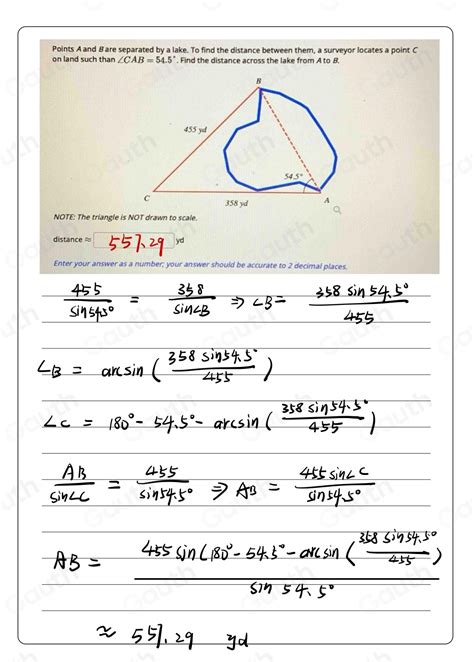 Points A and B are separated by a lake. To find the distance between them, a surveyor locates a point C
on land such than ∠CAB = 54.5°. Find the distance across the lake from A to B.
B
455 yd
54.5°
C
358 yd
A
NOTE: The triangle is NOT drawn to scale.
distance ≈ 557.29 yd
Enter your answer as a number; your answer should be accurate to 2 decimal places.
455/sin54.5° = 358/sin∠B ⇒ ∠B = 358 sin 54.5°/455
∠B = arcsin (358 sin54.5°/455)
∠C = 180° - 54.5° - arcsin (358 sin 54.5°/455)
AB/sin∠C = 455/sin54.5° ⇒ AB = 455 sin∠C/sin54.5°
AB = 455 sin(180° - 54.5° - arcsin (358 sin 54.5°/455)/sin 54.5°
≈ 557.29 yd